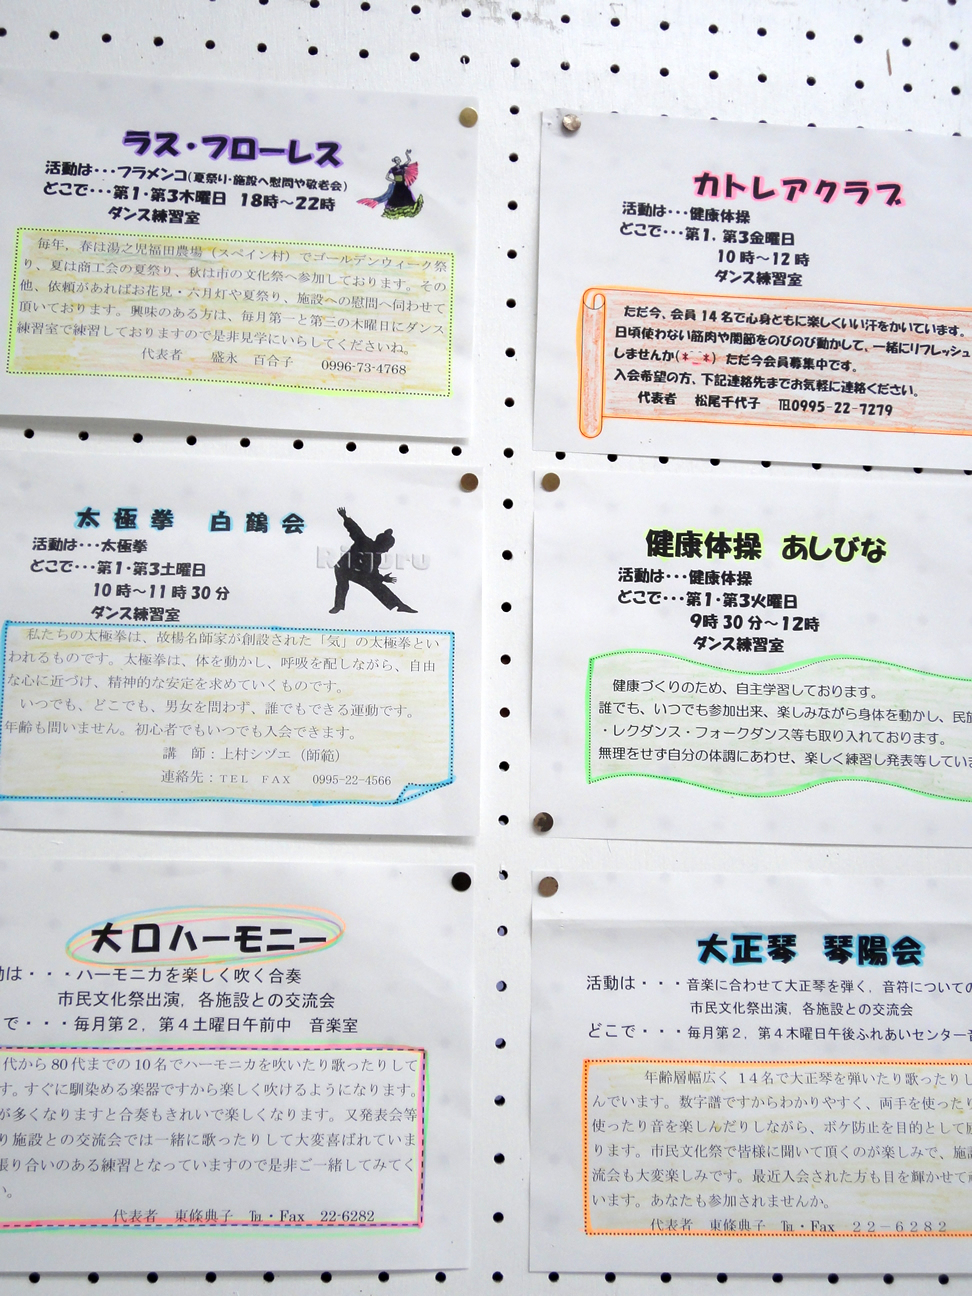 ラス・フローレス
活動は・・・フラメンコ(夏祭り・施設へ慰問や敬老会)
どこで・・・第1・第3木曜日 18時～22時
ダンス練習室
毎年，春は湯之児福田農場（スペイン村）でゴールデンウィーク祭
り、夏は商工会の夏祭り、秋は市の文化祭へ参加しております。その
他、依頼があればお花見・六月灯や夏祭り、施設への慰問へ伺わせて
頂いております。興味のある方は、毎月第一と第三の木曜日にダンス
練習室で練習しておりますので是非見学にいらしてくださいね。
代表者 盛永 百合子 0996-73-4768
カトレアクラブ
活動は・・・健康体操
どこで・・・第1，第3金曜日
10時～12時
ダンス練習室
ただ今、会員14名で心身ともに楽しくいい汗をかいています。
日頃使わない筋肉や関節をのびのび動かして、一緒にリフレッシュ
しませんか(*^_^*) ただ今会員募集中です。
入会希望の方、下記連絡先までお気軽に連絡ください。
代表者 松尾千代子 ℡0995-22-7279
太極拳 白鶴会
活動は・・・太極拳
どこで・・・第1・第3土曜日
10時～11時30分
ダンス練習室
Riporu
私たちの太極拳は、故楊名師家が創設された「気」の太極拳とい
われるものです。太極拳は、体を動かし、呼吸を配しながら、自由
な心に近づけ、精神的な安定を求めていくものです。
いつでも、どこでも、男女を問わず、誰でもできる運動です。
年齢も問いません。初心者でもいつでも入会できます。
講 師：上村シヅエ（師範）
連絡先：ＴＥＬ ＦＡＸ 0995-22-4566
健康体操 あしびな
活動は・・・健康体操
どこで・・・第1・第3火曜日
9時30分～12時
ダンス練習室
健康づくりのため、自主学習しております。
誰でも、いつでも参加出来、楽しみながら身体を動かし、民
・レクダンス・フォークダンス等も取り入れております。
無理をせず自分の体調にあわせ、楽しく練習し発表等してい
大口ハーモニー
動は・・・ハーモニカを楽しく吹く合奏
市民文化祭出演，各施設との交流会
で・・・毎月第２，第４土曜日午前中 音楽室
代から80代までの10名でハーモニカを吹いたり歌ったりして
す。すぐに馴染める楽器ですから楽しく吹けるようになります。
が多くなりますと合奏もきれいで楽しくなります。又発表会等
り施設との交流会では一緒に歌ったりして大変喜ばれていま
張り合いのある練習となっていますので是非ご一緒してみてく
い。
代表者 東條典子 ℡・Fax 22-6282
大正琴 琴陽会
活動は・・・音楽に合わせて大正琴を弾く，音符についての
市民文化祭出演，各施設との交流会
どこで・・・毎月第２，第４木曜日午後ふれあいセンター
年齢層幅広く 14名で大正琴を弾いたり歌ったりし
んでいます。数字譜ですからわかりやすく、両手を使ったり
使ったり音を楽しんだりしながら、ボケ防止を目的として
ります。市民文化祭で皆様に聞いて頂くのが楽しみで、施
流会も大変楽しみです。最近入会された方も目を輝かせて
います。あなたも参加されませんか。
代表者 東條典子 ℡・Fax ２２－６２８２